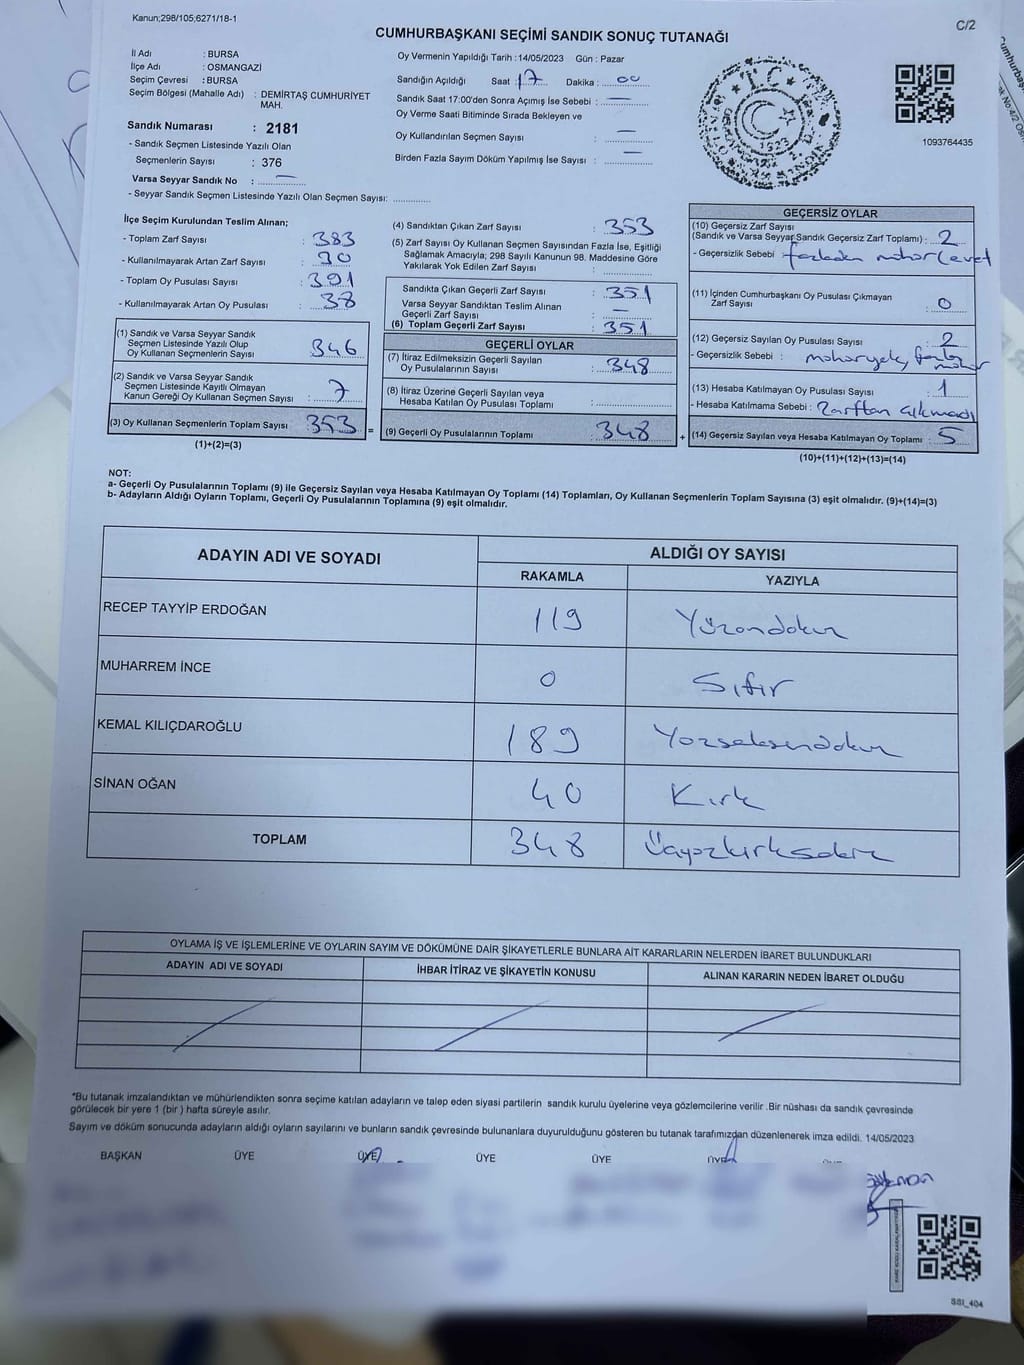 Kanun;298/105;6271/18-1
C/2
CUMHURBAŞKANI SEÇİMİ SANDIK SONUÇ TUTANAĞI
İl Adı : BURSA
İlçe Adı : OSMANGAZİ
Seçim Çevresi : BURSA
Seçim Bölgesi (Mahalle Adı) : DEMİRTAŞ CUMHURİYET
MAH.
Sandık Numarası : 2181
- Sandık Seçmen Listesinde Yazılı Olan
Seçmenlerin Sayısı : 376
Varsa Seyyar Sandık No : —
- Seyyar Sandık Seçmen Listesinde Yazılı Olan Seçmen Sayısı: ............
Oy Vermenin Yapıldığı Tarih : 14/05/2023 Gün : Pazar
Sandığın Açıldığı Saat : 17 Dakika : 00
Sandık Saat 17:00'den Sonra Açımış İse Sebebi : —
Oy Verme Saati Bitiminde Sırada Bekleyen ve
Oy Kullandırılan Seçmen Sayısı : —
Birden Fazla Sayım Döküm Yapılmış İse Sayısı : —
1093764435
İlçe Seçim Kurulundan Teslim Alınan;
- Toplam Zarf Sayısı : 383
- Kullanılmayarak Artan Zarf Sayısı : 30
- Toplam Oy Pusulası Sayısı : 391
- Kullanılmayarak Artan Oy Pusulası : 38
(1) Sandık ve Varsa Seyyar Sandık
Seçmen Listesinde Yazılı Olup
Oy Kullanan Seçmenlerin Sayısı : 346
(2) Sandık ve Varsa Seyyar Sandık
Seçmen Listesinde Kayıtlı Olmayan
Kanun Gereği Oy Kullanan Seçmen Sayısı : 7
(3) Oy Kullanan Seçmenlerin Toplam Sayısı : 353
(1)+(2)=(3)
(4) Sandıktan Çıkan Zarf Sayısı : 353
(5) Zarf Sayısı Oy Kullanan Seçmen Sayısından Fazla İse, Eşitliği
Sağlamak Amacıyla; 298 Sayılı Kanunun 98. Maddesine Göre
Yakılarak Yok Edilen Zarf Sayısı : ............
Sandıkta Çıkan Geçerli Zarf Sayısı : 351
Varsa Seyyar Sandıktan Teslim Alınan
Geçerli Zarf Sayısı : —
(6) Toplam Geçerli Zarf Sayısı : 351
GEÇERLİ OYLAR
(7) İtiraz Edilmeksizin Geçerli Sayılan
Oy Pusulalarının Sayısı : 348
(8) İtiraz Üzerine Geçerli Sayılan veya
Hesaba Katılan Oy Pusulası Toplamı : ............
= (9) Geçerli Oy Pusulalarının Toplamı : 348 +
GEÇERSİZ OYLAR
(10) Geçersiz Zarf Sayısı
(Sandık ve Varsa Seyyar Sandık Geçersiz Zarf Toplamı) : 2
- Geçersizlik Sebebi : fazladan mühür
(11) İçinden Cumhurbaşkanı Oy Pusulası Çıkmayan
Zarf Sayısı : 0
(12) Geçersiz Sayılan Oy Pusulası Sayısı : 2
- Geçersizlik Sebebi : mühür yok, fazla
mühür
(13) Hesaba Katılmayan Oy Pusulası Sayısı : 1
- Hesaba Katılmama Sebebi : Zarftan çıkmadı
(14) Geçersiz Sayılan veya Hesaba Katılmayan Oy Toplamı : 5
(10)+(11)+(12)+(13)=(14)
NOT:
a- Geçerli Oy Pusulalarının Toplamı (9) ile Geçersiz Sayılan veya Hesaba Katılmayan Oy Toplamı (14) Toplamları, Oy Kullanan Seçmenlerin Toplam Sayısına (3) eşit olmalıdır. (9)+(14)=(3)
b- Adayların Aldığı Oyların Toplamı, Geçerli Oy Pusulalarının Toplamına (9) eşit olmalıdır.
ADAYIN ADI VE SOYADI ALDIĞI OY SAYISI
RAKAMLA YAZIYLA
RECEP TAYYİP ERDOĞAN 119 Yüzondokuz
MUHARREM İNCE 0 Sıfır
KEMAL KILIÇDAROĞLU 189 Yüzseksendokuz
SİNAN OĞAN 40 Kırk
TOPLAM 348 Üçyüzkırksekiz
OYLAMA İŞ VE İŞLEMLERİNE VE OYLARIN SAYIM VE DÖKÜMÜNE DAİR ŞİKAYETLERLE BUNLARA AİT KARARLARIN NELERDEN İBARET BULUNDUKLARI
ADAYIN ADI VE SOYADI İHBAR İTİRAZ VE ŞİKAYETİN KONUSU ALINAN KARARIN NEDEN İBARET OLDUĞU
*Bu tutanak imzalandıktan ve mühürlendikten sonra seçime katılan adayların ve talep eden siyasi partilerin sandık kurulu üyelerine veya gözlemcilerine verilir .Bir nüshası da sandık çevresinde
görülecek bir yere 1 (bir ) hafta süreyle asılır.
Sayım ve döküm sonucunda adayların aldığı oyların sayılarını ve bunların sandık çevresinde bulunanlara duyurulduğunu gösteren bu tutanak tarafımızdan düzenlenerek imza edildi. 14/05/2023
BAŞKAN ÜYE ÜYE ÜYE ÜYE ÜYE
SSI_404